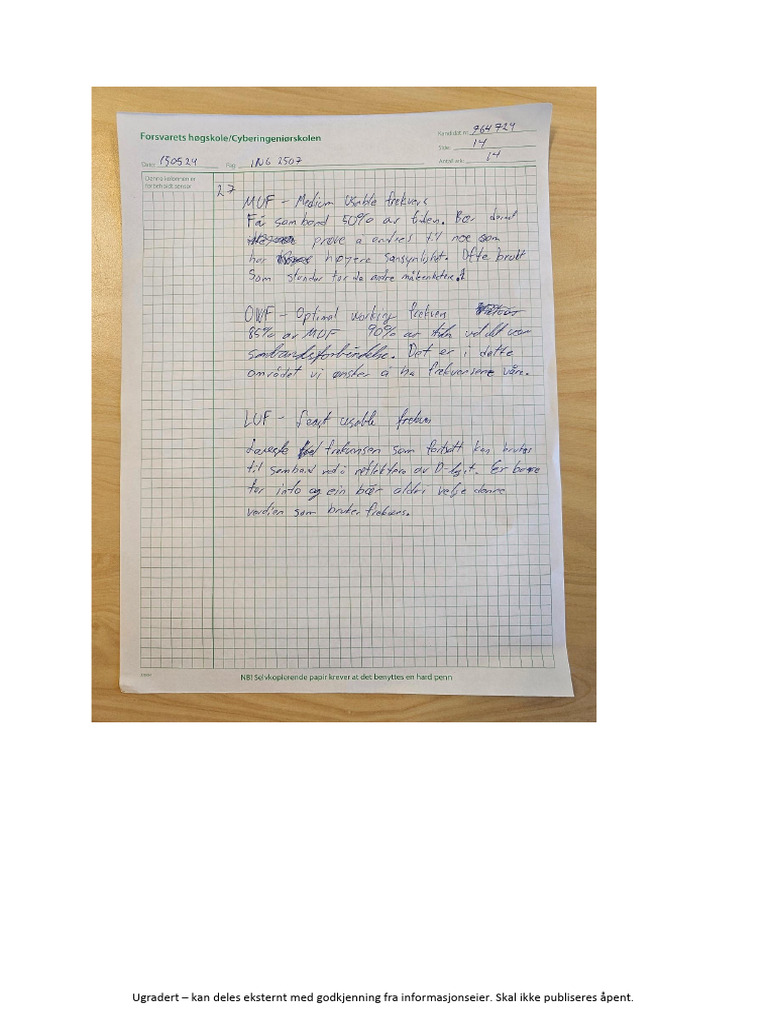 Forsvarets høgskole/Cyberingeniørskolen
Kandidat nr. 764724
Side: 14
Dato: 150524 Fag: ING 2507 Antall ark: 14
Denne kolonnen er
forbeholdt sensor
2.7
MUF - Medium usable frekvens
Få samband 50% av tiden. Bør derad
prøve å endres til noe som
har høyere sansynlighet. Ofte brukt
som standar for de adre måleenhetene.
OWF - Optimal working frekvens
85% av MUF 90% av tiden vil det være
sambandsforbindelse. Det er i dette
området vi ønsker å ha frekvensene våre.
LUF - least usable frekvens
Laveste frekvensen som fortsatt kan brukes
til samband ved å reflektere av D-laget. Er bare
for info og ein bær aldri velje denne
verdien som bruker frekvens.
NB! Selvkopierende papir krever at det benyttes en hard penn
Ugradert – kan deles eksternt med godkjenning fra informasjonseier. Skal ikke publiseres åpent.